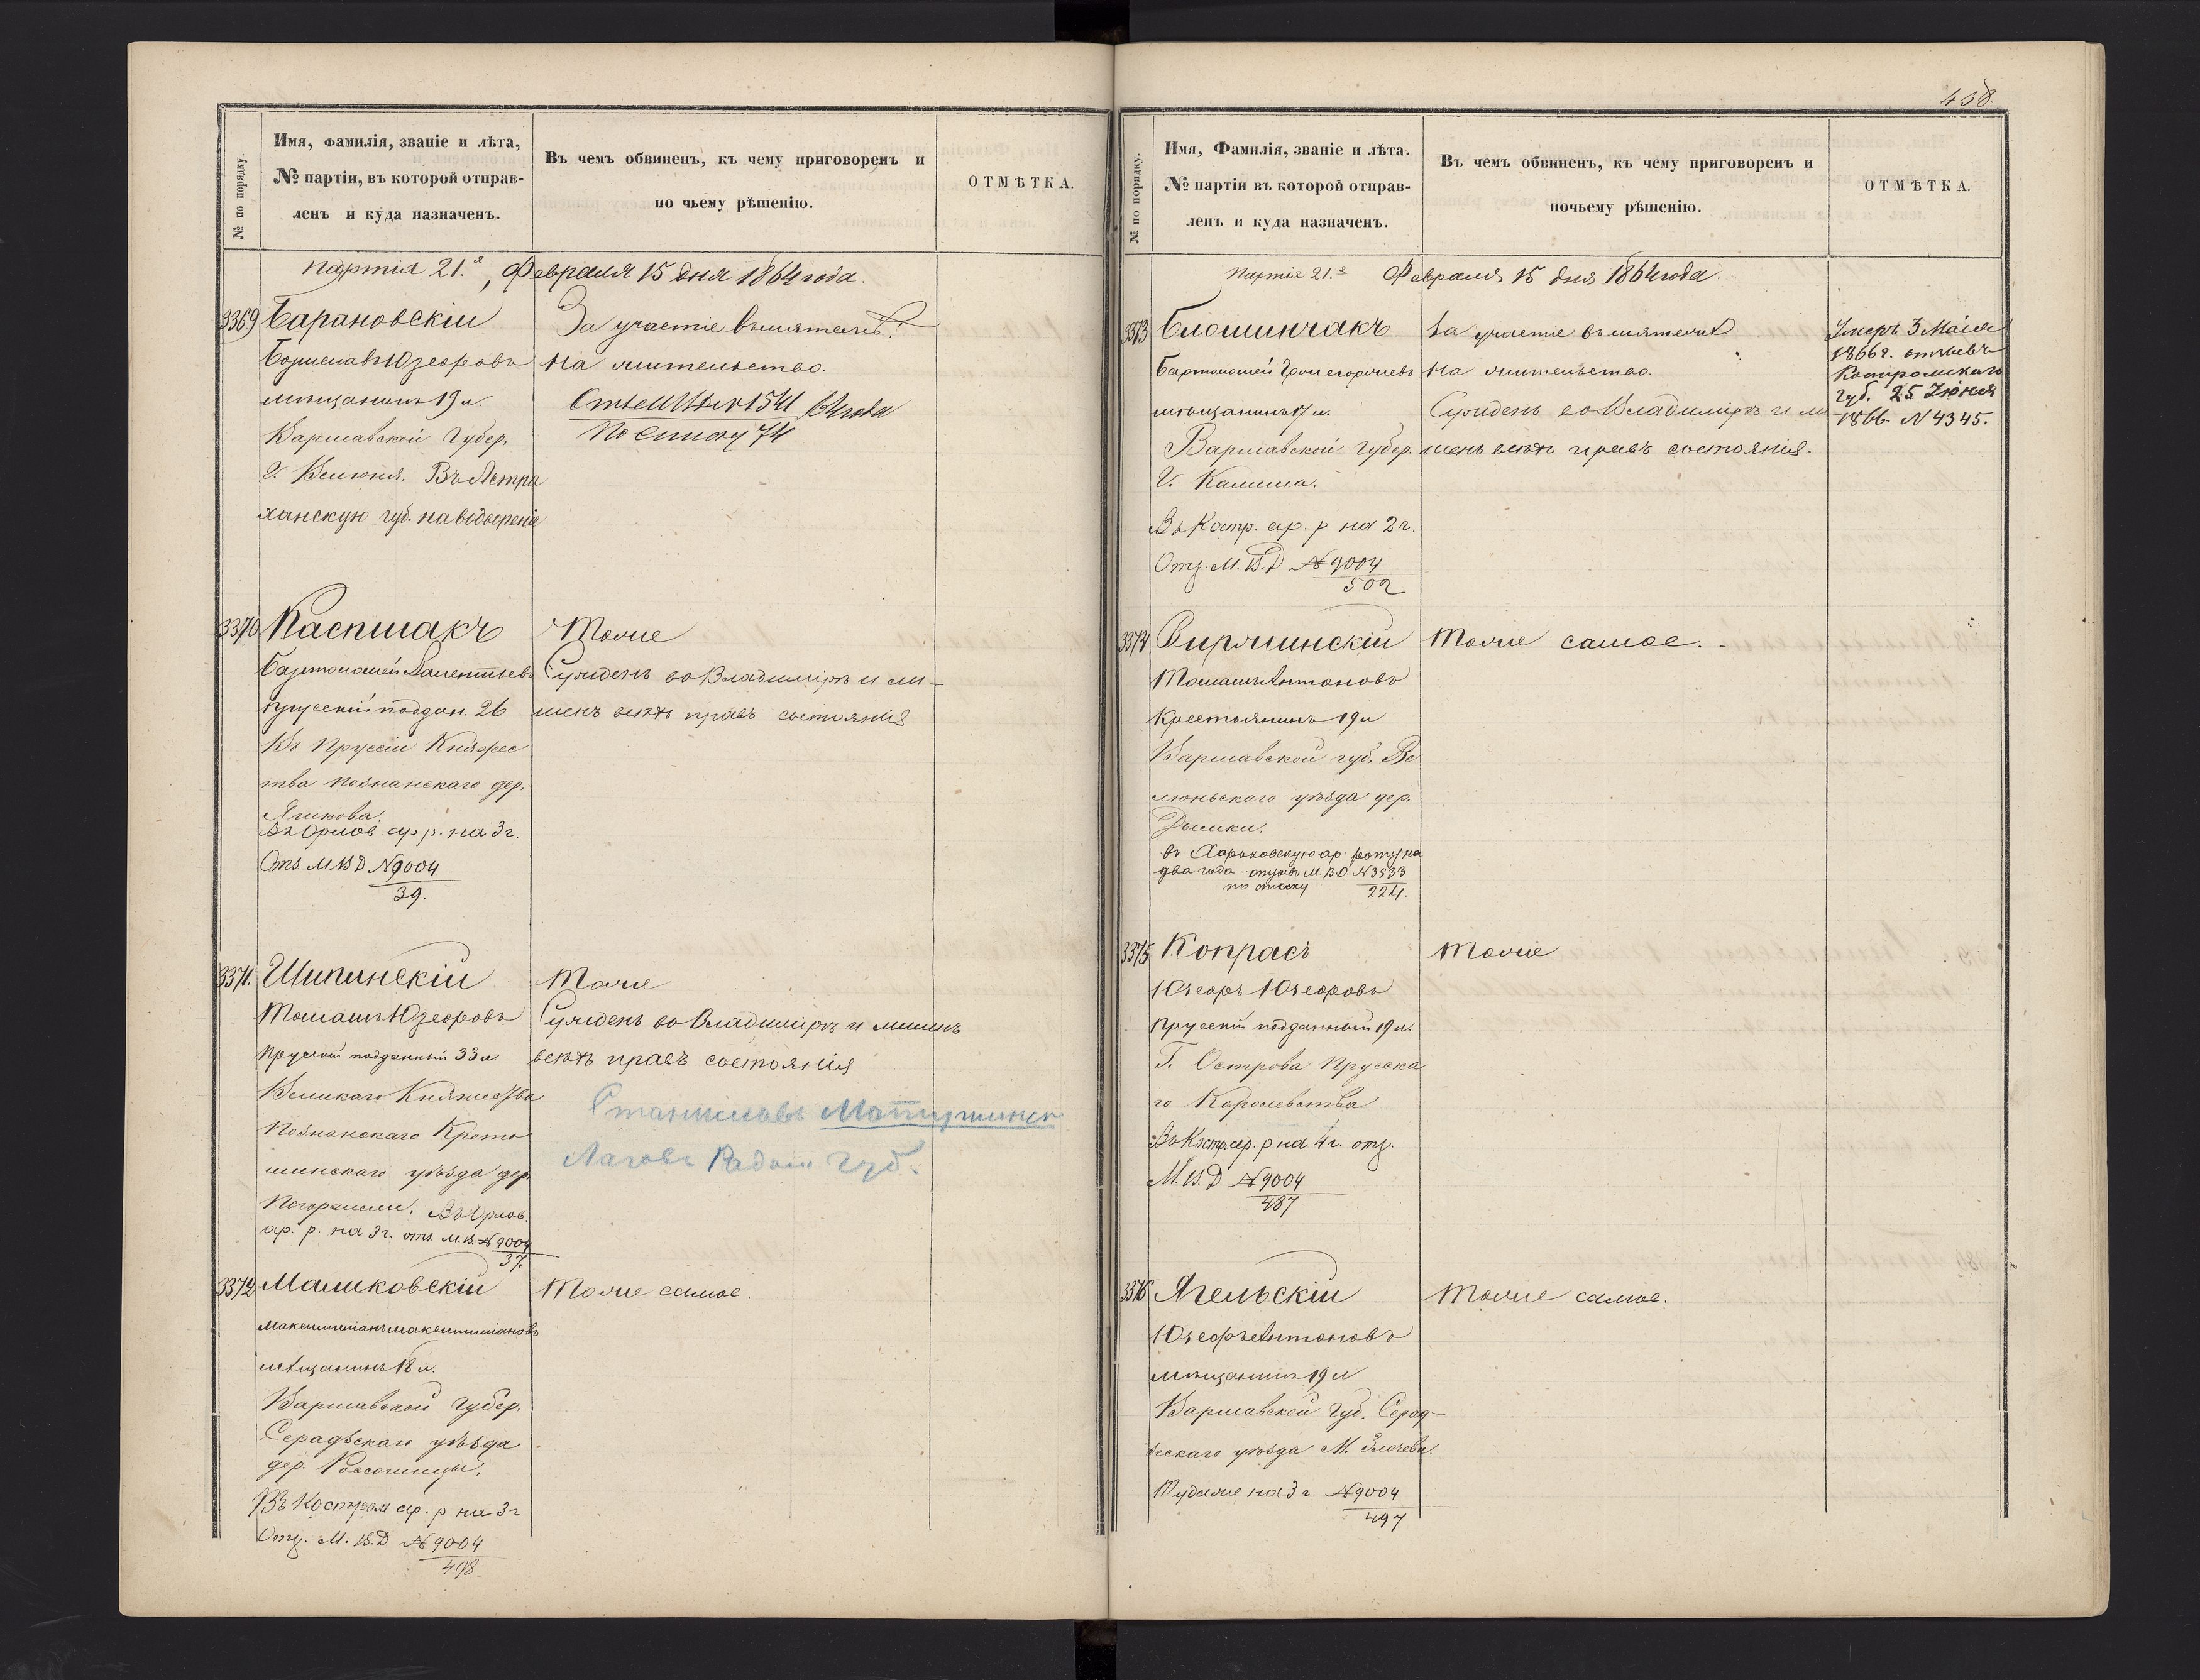 № по порядку.
Имя, фамилія, званіе и лѣта,
№ партіи, въ которой отправ-
ленъ и куда назначенъ.
Въ чемъ обвиненъ, къ чему приговоренъ и
по чьему рѣшенію.
ОТМѢТКА.
партія 21.я, Февраля 15 дня 1864 года.
3369
Барановскій
Болеславъ Юзефовъ
мѣщанинъ 19 л.
Варшавской Губер.
Г. Велюня. Въ Астра
ханскую губ. на водвореніе
За участіе въ мятежѣ.
На жительство.
64 года
По списку 74
3370
Каспшакъ
Бартоломей Валентьевъ
прусскій поддан. 26
Въ Пруссіи Княжес
тва Познанскаго дер.
Въ Орлов. ар. р. на 3 г.
Отз М В Д № 9004
39.
Тоже
Сужденъ во Владимірѣ и ли-
шенъ всѣхъ правъ состоянія
3371.
Шипинскій
Томашъ Юзефовъ
Прусскій подданный 33 л.
Великаго Княжества
Познанскаго Крото
шинскаго уѣзда дер.
Въ Орлов.
ар. р. на 3 г. отз. М. В. № 9004
37.
Тоже
Сужденъ во Владимірѣ и лишенъ
всѣхъ правъ состоянія
Станиславъ
Лаговъ Радом Губ.
3372
Маликовскій
Максимиліанъ Максимиліановъ
мѣщанинъ 18 л.
Варшавской Губер.
Серадзскаго уѣзда
дер. Россошицы.
Въ Костром ар. р на 3 г
Отз. М. В. Д № 9004
498.
Тоже самое.
438.
№ по порядку.
Имя, Фамилія, званіе и лѣта.
№ партіи въ которой отправ-
ленъ и куда назначенъ.
Въ чемъ обвиненъ, къ чему приговоренъ и
почьему рѣшенію.
ОТМѢТКА.
Партія 21.я Февраля 15 дня 1864 года.
3373
Блошинчакъ
Бартоломей
мѣщанинъ 17 л.
Варшавской Губер.
Г. Калиша.
Въ Костр. ар. р на 2 г.
Отз. М. В. Д № 9004
502
За участіе въ мятежѣ
На жительство.
Сужденъ во Владимірѣ и ли-
шенъ всѣхъ правъ состоянія.
Умеръ 3 Маія
1866 г. отзывъ
Костромскаго
Губ. 25 Іюня
1866. № 4345.
3374
Томашъ Антоновъ
Крестьянинъ 19 л
Варшавской губ. Ве
люньскаго уѣзда дер.
Дымки.
въ Харьковскую ар. роту на
два года отзывъ М. В. Д. № 3533
по списку 224.
Тоже самое.
3375
Копрасъ
Юзефъ Юзефовъ
прусскій подданный 19 л.
Г. Острова Прусска
го Королевства
Въ Костр. ар. р на 4 г. отз.
М. В. Д № 9004
487
Тоже
3376
Ягельскій
Юзефъ Антоновъ
мѣщанинъ 19 л
Варшавской Губ. Серад-
зскаго уѣзда М. Злочева.
Туда же на 3 г. № 9004
497
Тоже самое.